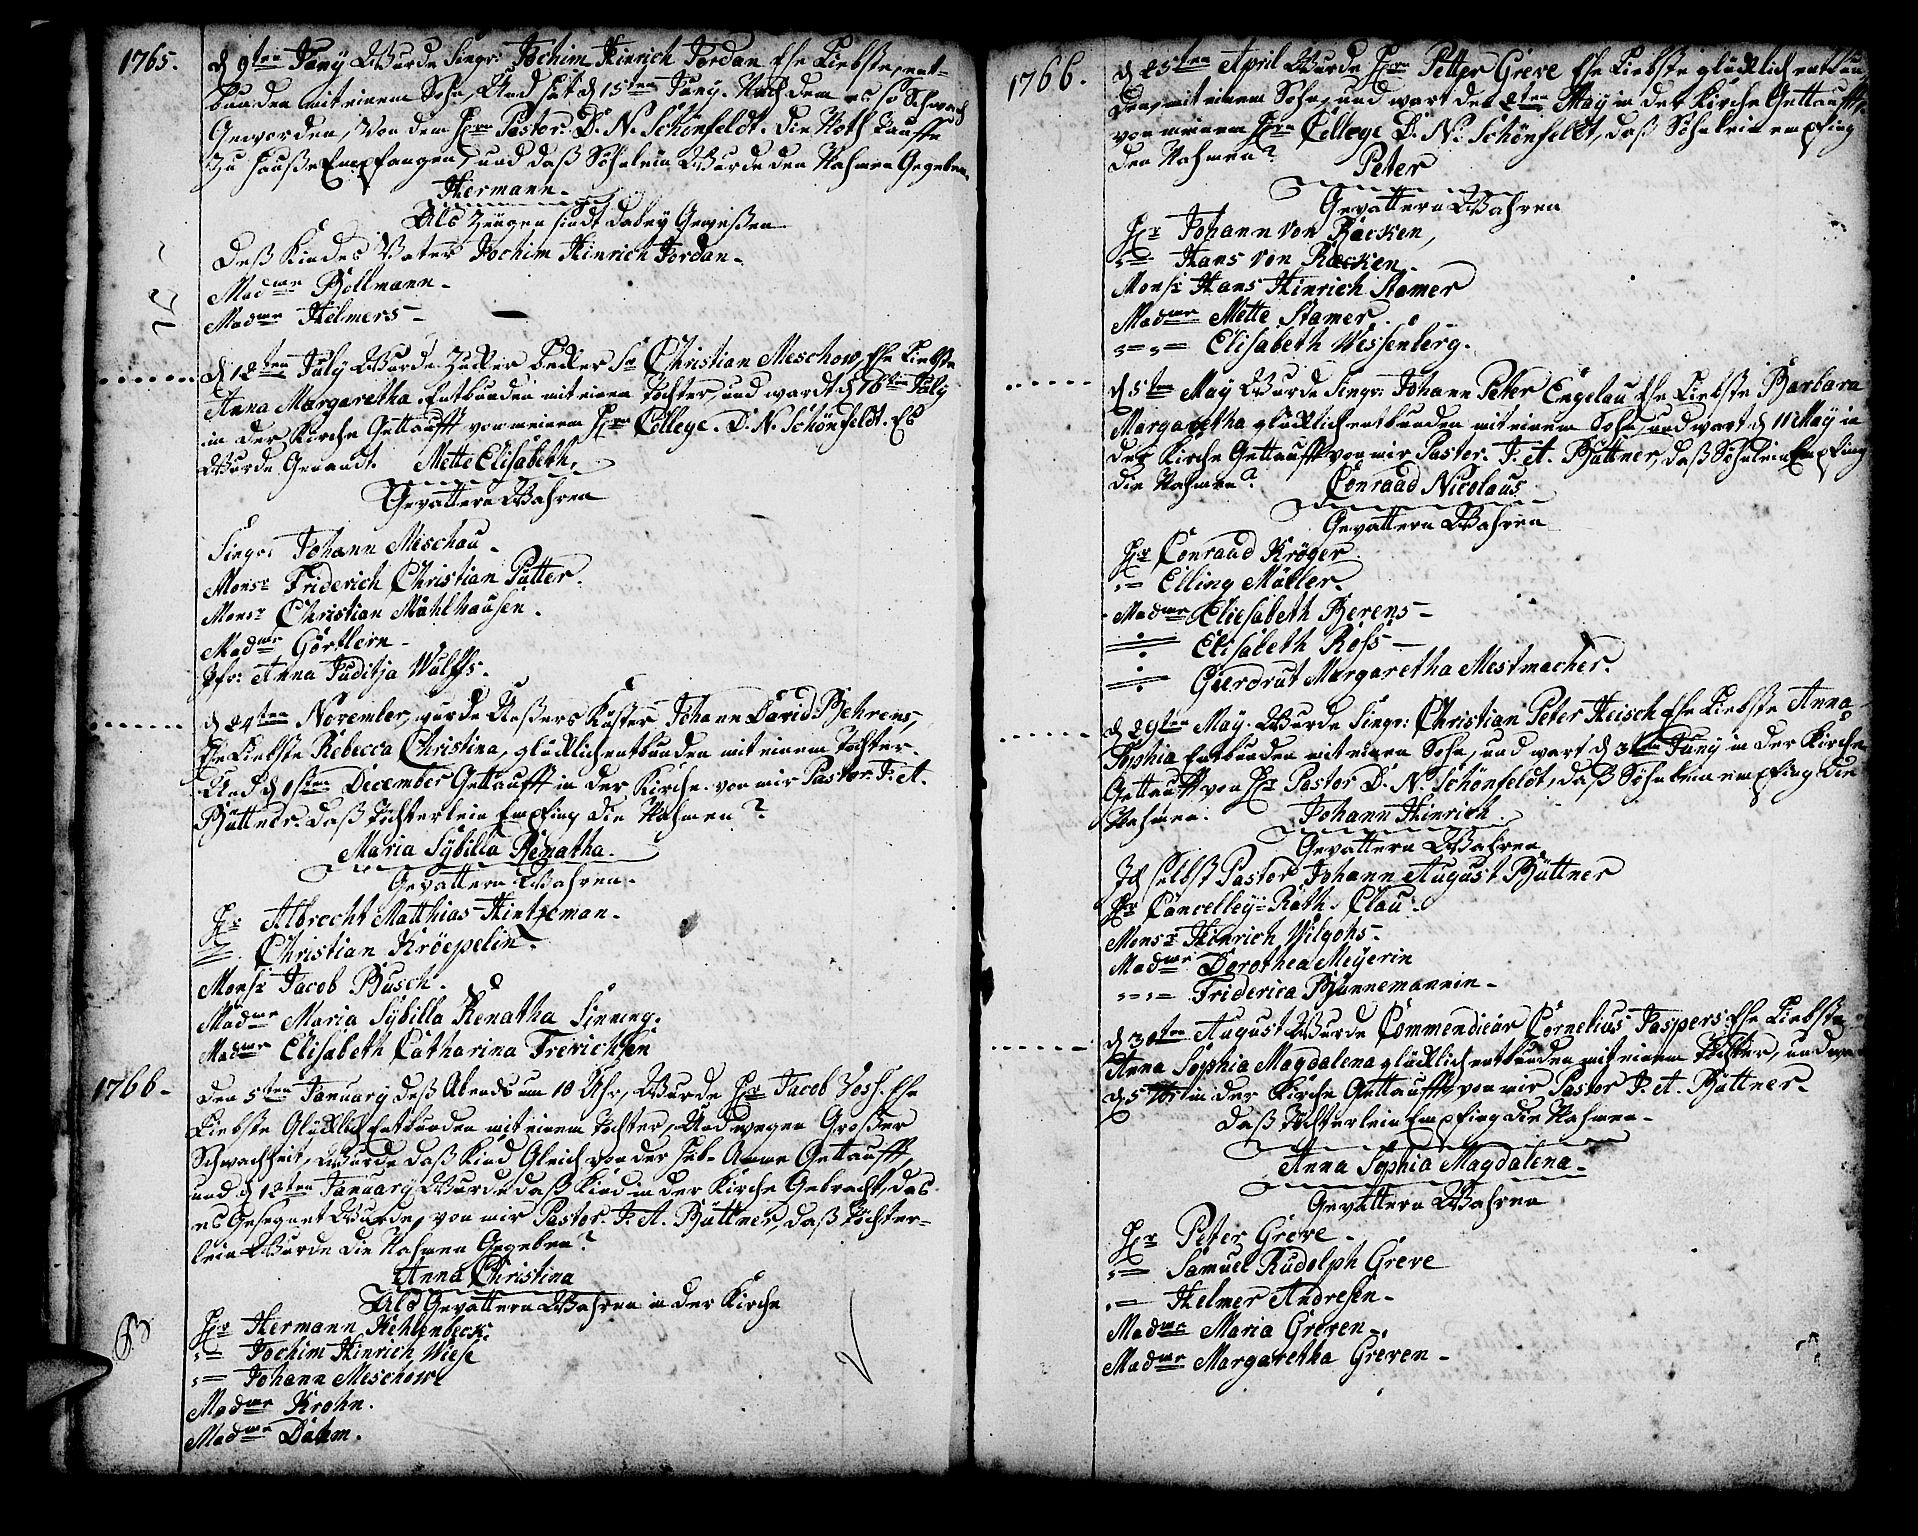 1765.
d 9ten Juny Wurde Singr: Jochim Hinrich Jordan Ehe Liebste, ent-
bunden mit einem Sohn, Und hat d 15ten Juny. Nach dem es so Schwach
Geworden, Von dem Hrn Pastor. D. N. Schönfeldt. Die Noth Tauffe
Zu Hauße Empfangen, und daß Söhnlein Wurde den Nahmen Gegeben,
Hermann.
Als Zeugen sindt dabey Geweßen
Deß Kindes Vater Jochim Hinrich Jordan.
Madme Bollmann.
Madme Helmers.
d 12ten July Wurde Zucker becker Sr Christian Meschow, Ehe Liebste
Anna Margaretha. Entbunden mit einem Tochter, und wardt d 16ten July
in der Kirche Gettaufft von meinem Hrn College. D. N. Schönfeldt. Es
Wurde Genandt. Mette Elisabeth.
Gevattern Wahren
Singr: Johann Meschau.
Monsr Friderich Christian Pütter.
Monsr Christian Mühlhausen.
Madme Görtlern.
Jfr: Anna Juditja Wulffs.
d 24ten November, wurde Unßers Küster Johann David Behrens,
Ehe Liebste Rebecca Christina, glücklich entbunden mit einem Tochter.
Und d 1sten December Gettaufft in der Kirche. von mir Pastor. J. A.
Büttner. daß Töchterlein Empfing die Nahmen?
Maria Sybilla Renatha.
Gevattern Wahren.
Hr Albrecht Matthias Hintzeman.
= Christian Kröepelin.
Monsr Jacob Busch.
Madme Maria Sybilla Renatha Sinning.
Madme Elisabeth Catharina Frerichsen
1766.
Den 5ten January deß Abends um 10 Uhr, Wurde Hr Jacob Voss. Ehe
Liebste Glücklich Entbunden mit einem Tochter, Und wegen Großer
Schwachheit, Wurde daß Kind Gleich von der Heb-Amme Gettaufft,
und d 12ten January Wurde daß Kind in der Kirche Gebracht, das
es Gesegnet Wurde, von mir Pastor. J. A. Büttner, daß Töchter-
lein Wurde die Nahmen Gegeben?
Anna Christina
Als Gevattern Wahren in der Kirche
Hr Hermann Kehlenbeck.
= Jochim Hinrich Wiese
= Johann Meschow
Madme Krohn.
Madme Dahm.
1766.
d 25ten April Wurde Hrn Petter Greve Ehe Liebste glücklich entbun-
den, mit einem Sohn, und wart den 2ten May in der Kirche Gettaufft,
von meinem Hrn College D. N. Schönfeldt, daß Söhnlein empfing
den Nahmen?
Peter
Gevattern Wahren
Hr Johann von Racken,
= Hans von Racken.
Monsr Hans Hinrich Stamer
Madme Mette Stamer.
= = Elisabeth Wissenberg.
d 5ten May Wurde Singr: Johann Peter Engelau Ehe Liebste Barbara
Margaretha glücklich entbunden mit einem Sohn, und wart d 11 May in
der Kirche Gettaufft von mir Pastor. J. A. Büttner, daß Söhnlein Empfing
die Nahmen? Conraad Nicolaus
Gevattern Wahren
Hr Conraad Kröger
= Elling Müller.
Madme Eliesabeth Berens
Elisabeth Ross
Gierdrut Margaretha Mestmacher.
d 29ten May. Wurde Singr: Christian Peter Heisch Ehe Liebste Anna
Sophia Entbunden mit einen Sohn, und wart d 3ten Juny in der Kirche
Gettaufft von Hr Pastor D. N. Schönfeldt, daß Söhnlein empfing die
Nahmen. Johann Hinrich.
Gevattern Wahren
Ich selbst Pastor Johann August Büttner
Hr Cancelley-Rath. Clau.
Monsr Hinrich Wilgohs.
Madme Dorothea Meyerin
= = Friderica Bünnemannin.
d 30ten August Wurde Commendieur Cornelius Jaspers Ehe Liebste
Anna Sophia Magdalena glücklich entbunden mit einem Tochter, und wart
d 5 in der Kirche Gettaufft, von mir Pastor J. A. Büttner.
daß Töchterlein Empfing die Nahmen.
Anna Sophia Magdalena.
Gevattern Wahren
Hr Peter Greve.
= Samuel Rudolph Greve
= Helmer Andresen.
Madme Maria Greven.
Madme Margaretha Greven.